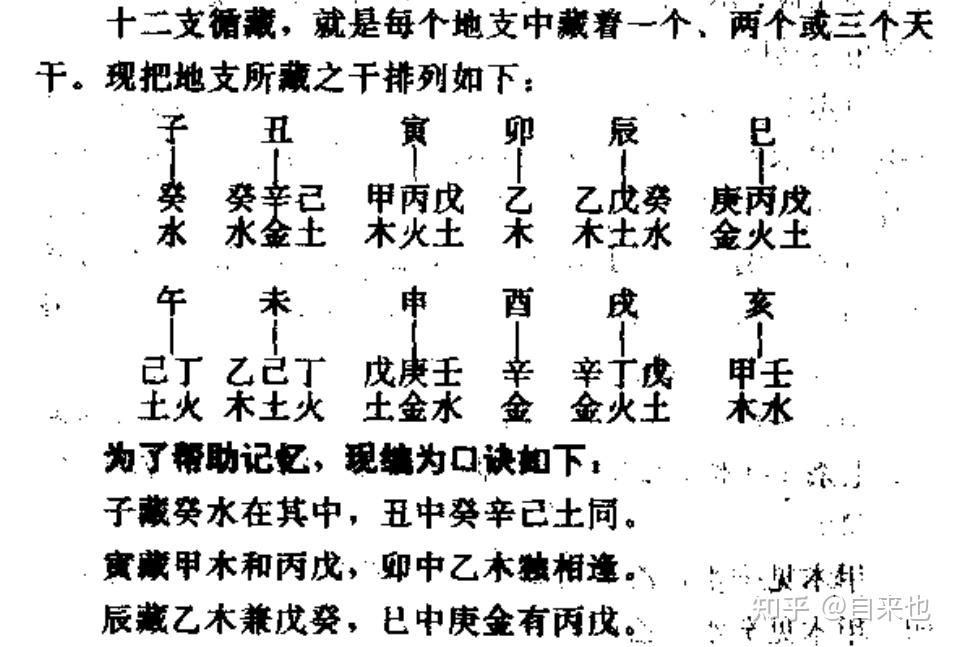 十二支循藏，就是每个地支中藏着一个、两个或三个天
干。现把地支所藏之干排列如下：
子 丑 寅 卯 辰 巳
癸 癸辛己 甲丙戊 乙 乙戊癸 庚丙戊
水 水金土 木火土 木 木土水 金火土
午 未 申 酉 戌 亥
己丁 乙己丁 戊庚壬 辛 辛丁戊 甲壬
土火 木土火 土金水 金 金火土 木水
为了帮助记忆，现编为口诀如下：
子藏癸水在其中，丑中癸辛己土同。
寅藏甲木和丙戊，卯中乙木独相逢。
辰藏乙木兼戊癸，巳中庚金有丙戊。
知乎 @自来也